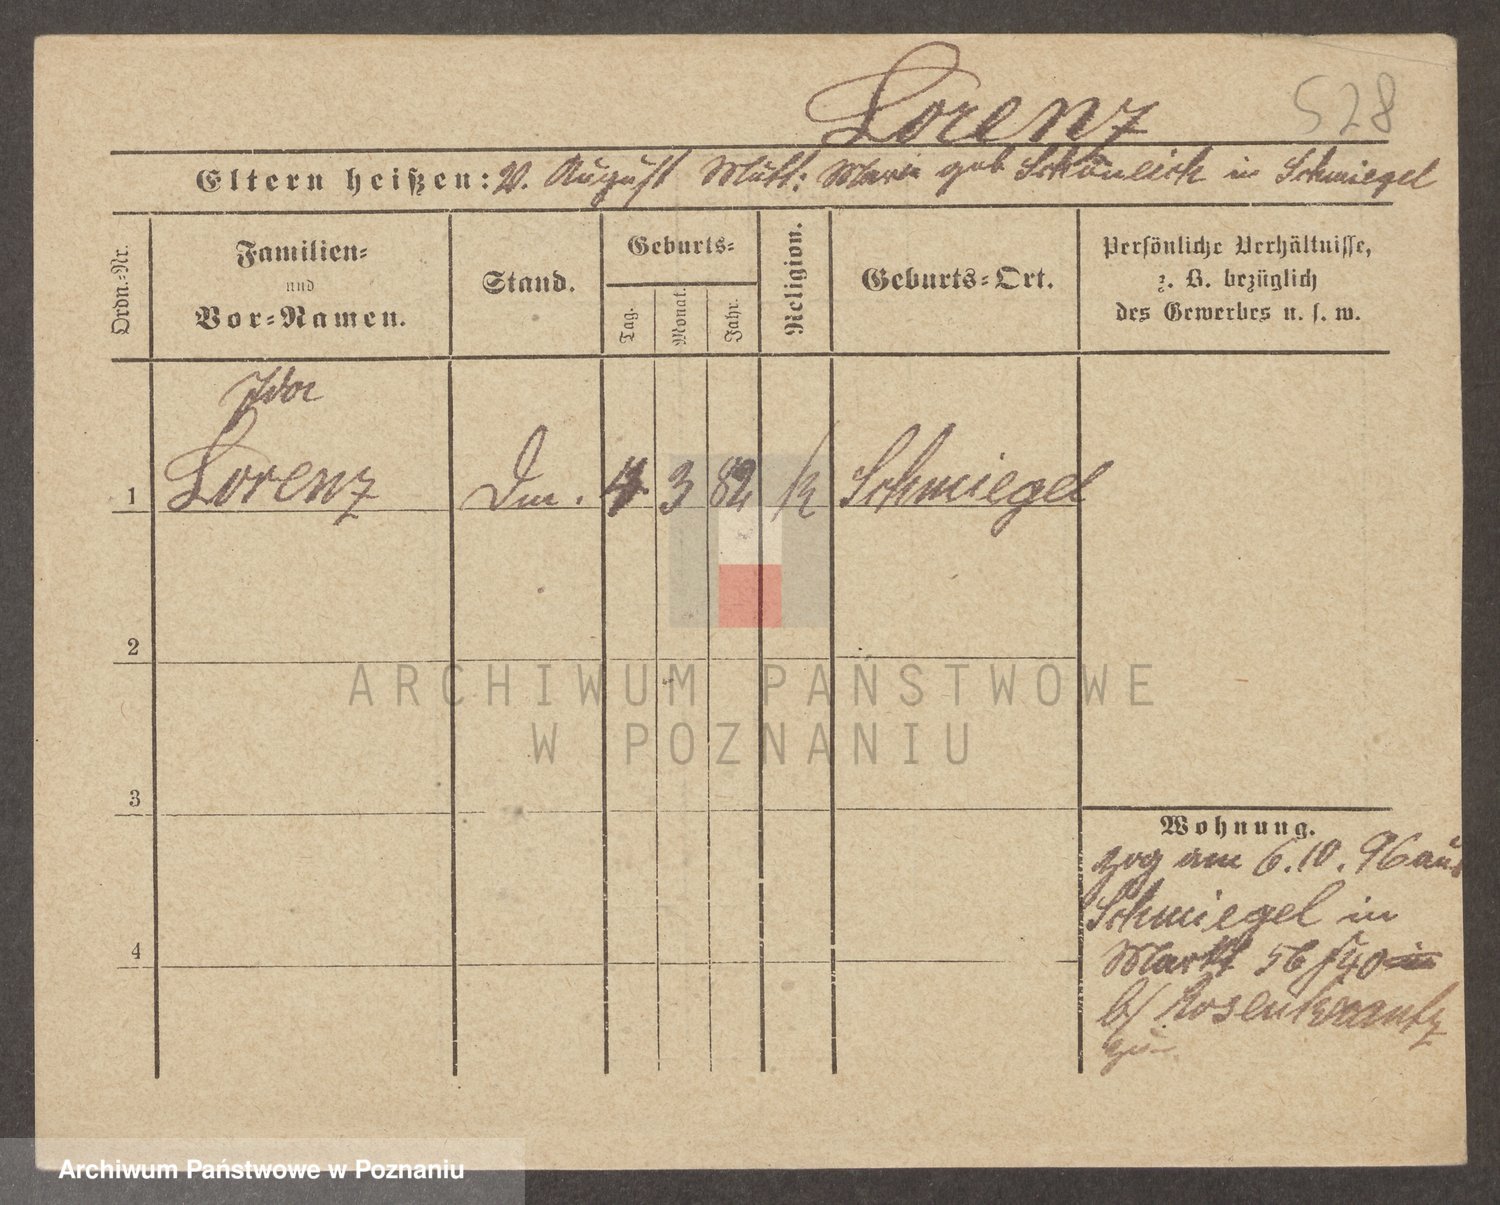 Lorenz
528
Eltern heißen: V. August Mutt: Marie geb Schöneich in Schmiegel
Ordn.-Nr.
Familien-
und
Vor-Namen.
Stand.
Geburts-
Tag.
Monat.
Jahr.
Religion.
Geburts-Ort.
Persönliche Verhältnisse,
z. B. bezüglich
des Gewerbes u. s. w.
1 Lorenz 4 3 82 k Schmiegel
2
3
4
Wohnung.
zog am 6.10.96 aus
Schmiegel in
Markt 56
b/ Rosenkrantz
zu
ARCHIWUM PAŃSTWOWE
W POZNANIU
Archiwum Państwowe w Poznaniu